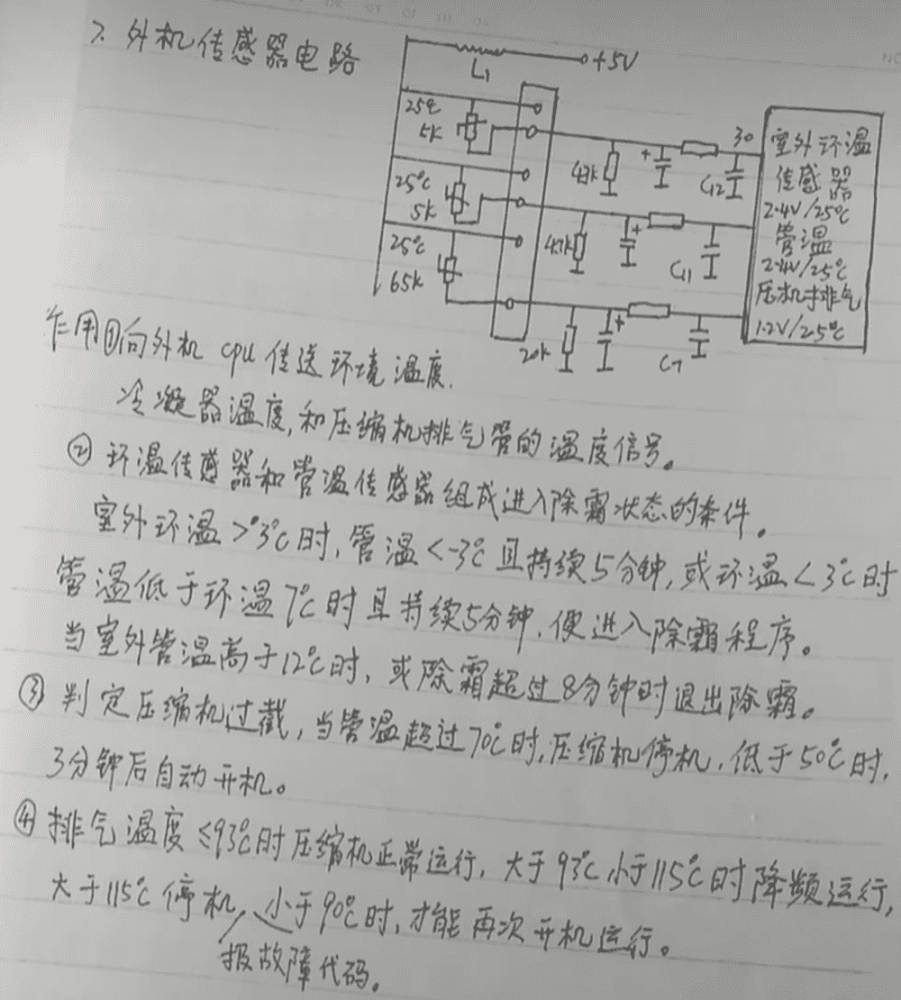 7. 外机传感器电路
L1
+5V
25℃
5K
25℃
5K
25℃
65K
4.7k
+
30
C12
4.7k
+
C11
20k
+
C7
室外环温
传感器
2.4V/25℃
管温
2.4V/25℃
压机排气
1.2V/25℃
作用①向外机 cpu 传送环境温度.
冷凝器温度,和压缩机排气管的温度信号。
② 环温传感器和管温传感器组成进入除霜状态的条件。
室外环温>3℃时,管温<-3℃且持续5分钟,或环温<3℃时
管温低于环温7℃时且持续5分钟.便进入除霜程序。
当室外管温高于12℃时,或除霜超过8分钟时退出除霜。
③ 判定压缩机过截,当管温超过70℃时,压缩机停机.低于50℃时,
3分钟后自动开机。
④ 排气温度≤93℃时压缩机正常运行,大于93℃小于115℃时降频运行,
大于115℃停机,小于90℃时,才能再次开机运行。
报故障代码。